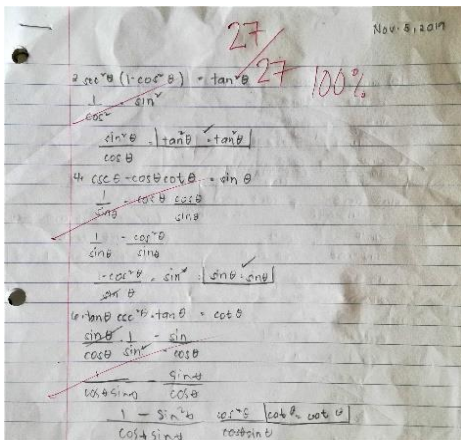 Nov. 5, 2019
27/27 100%
2. sec²θ (1-cos²θ) = tan²θ
1/cos² · sin²
sin²θ/cosθ = tan²θ = tan²θ
4. cscθ - cosθ cotθ = sinθ
1/sinθ - cosθ cosθ/sinθ
1/sinθ - cos²θ/sinθ
1-cos²θ/sinθ = sin² = sinθ = sinθ
6. tanθ csc²θ - tanθ = cotθ
sinθ/cosθ · 1/sin² - sin/cosθ
1/cosθ sinθ - sinθ/cosθ
1 - sin²θ/cosθ sinθ cos²θ/cosθ sinθ cotθ = cotθ